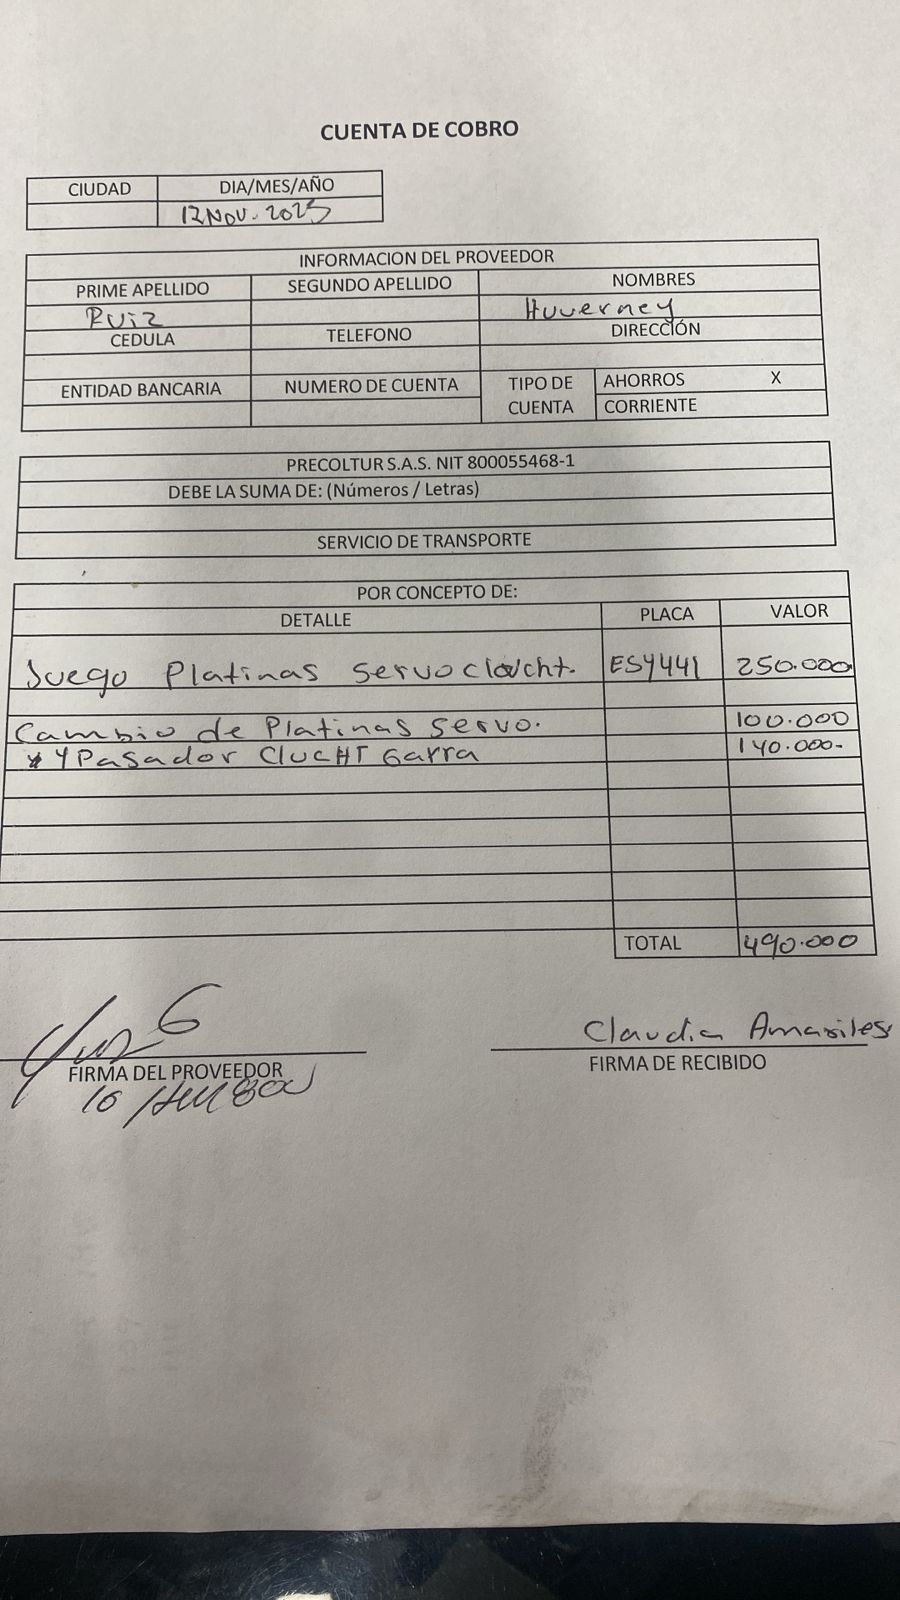 CUENTA DE COBRO
CIUDAD DIA/MES/AÑO
12 NOV. 2025
INFORMACION DEL PROVEEDOR
PRIME APELLIDO SEGUNDO APELLIDO NOMBRES
Ruiz Huverney
CEDULA TELEFONO DIRECCIÓN
ENTIDAD BANCARIA NUMERO DE CUENTA TIPO DE CUENTA AHORROS X
CORRIENTE
PRECOLTUR S.A.S. NIT 800055468-1
DEBE LA SUMA DE: (Números / Letras)
SERVICIO DE TRANSPORTE
POR CONCEPTO DE:
DETALLE PLACA VALOR
Juego Platinas servo cloucht. ESY441 250.000
Cambio de Platinas servo. 100.000
Y Pasador CLUCHT Garra 140.000-
TOTAL 490.000
Claudia Amariles
FIRMA DEL PROVEEDOR FIRMA DE RECIBIDO